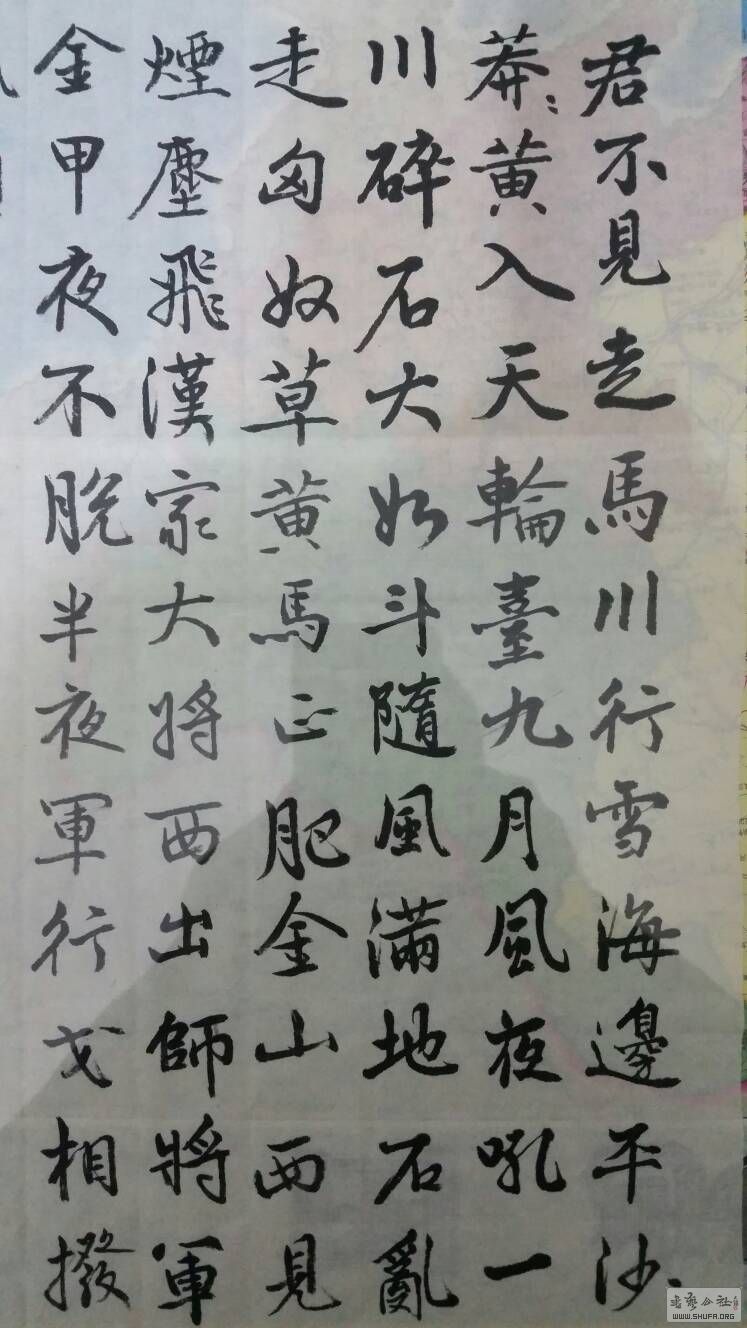 君不見走馬川行雪海邊平沙
莽〻黃入天輪臺九月風夜吼一
川碎石大如斗隨風滿地石亂
走匈奴草黃馬正肥金山西見
煙塵飛漢家大將西出師將軍
金甲夜不脫半夜軍行戈相撥
WWW.SHUFA.ORG